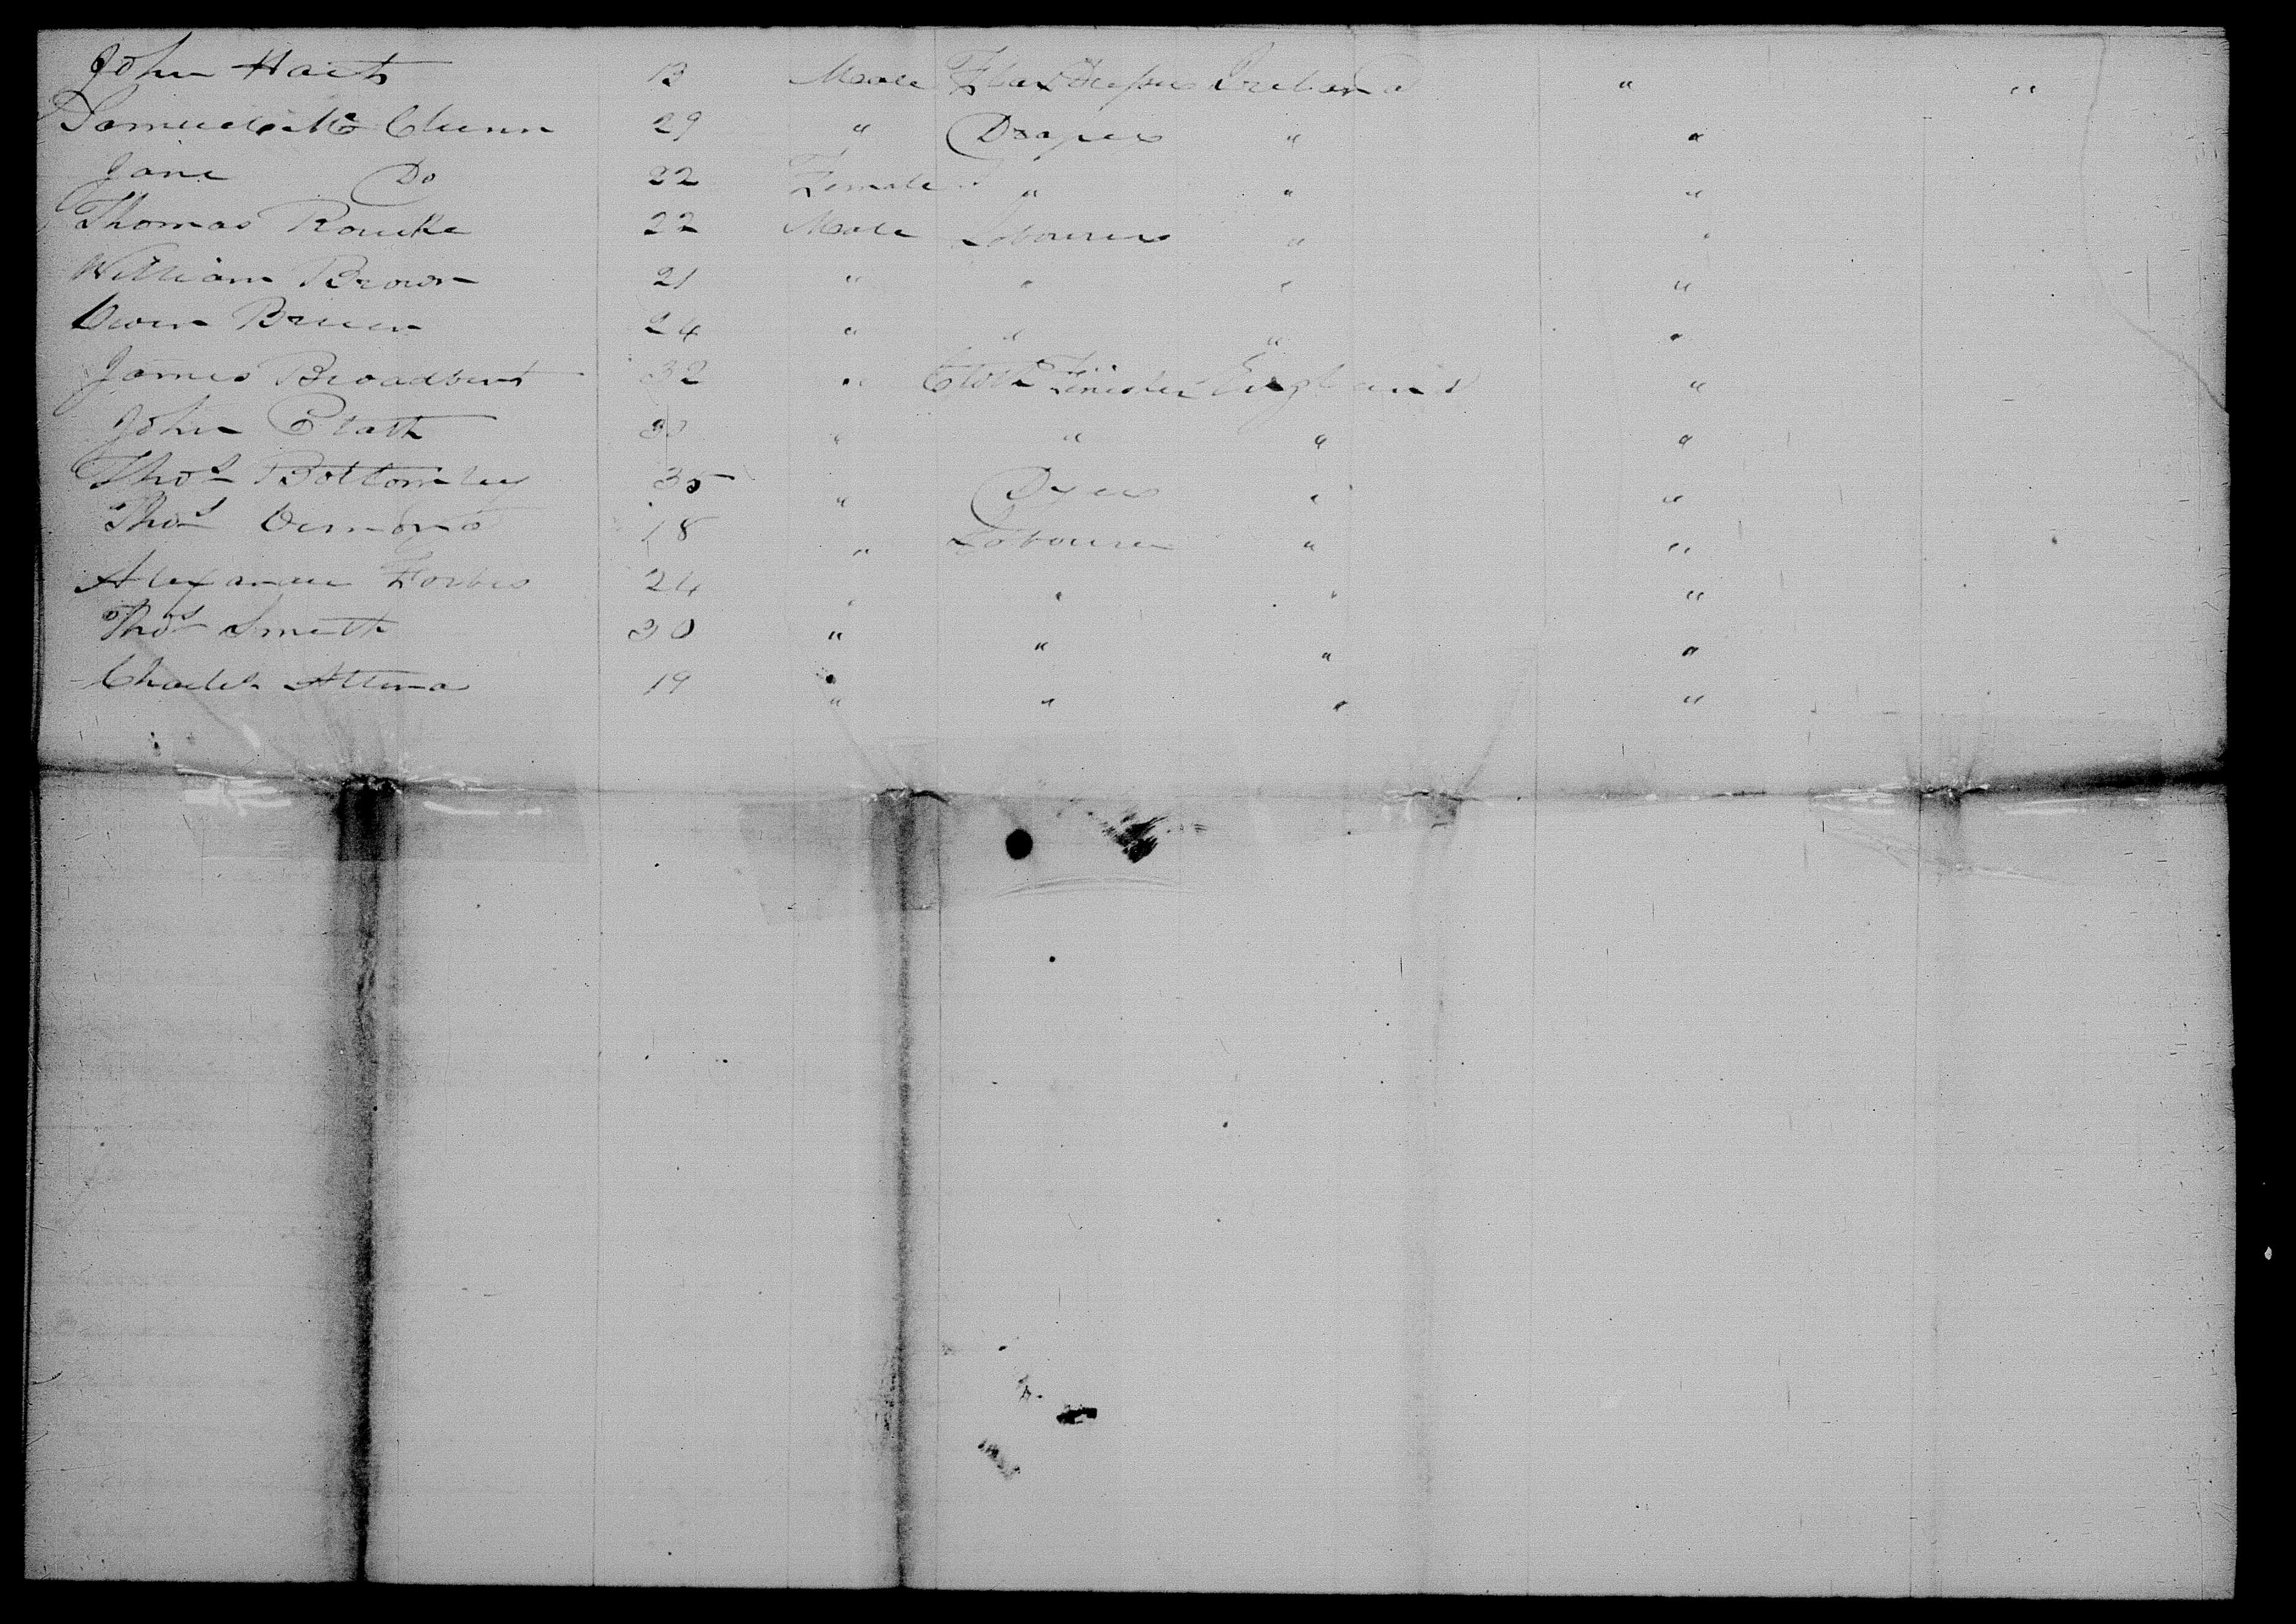 John Hart 13 Male Flax Ireland " "
Samuel Mc Clunn 29 " Draper " "
Jane Do 22 Female " " "
Thomas Rourke 22 Male Labourer " "
William Brown 21 " " " "
Owen Breen 24 " " " "
James Broadbent 32 " Cloth Finisher England "
John Platt " " " "
Thos Bottomley 35 " Dyer " "
Thos 18 " Labourer " "
Alexander Forbes 24 " " " "
Thos Smith 30 " " " "
19 " " " "